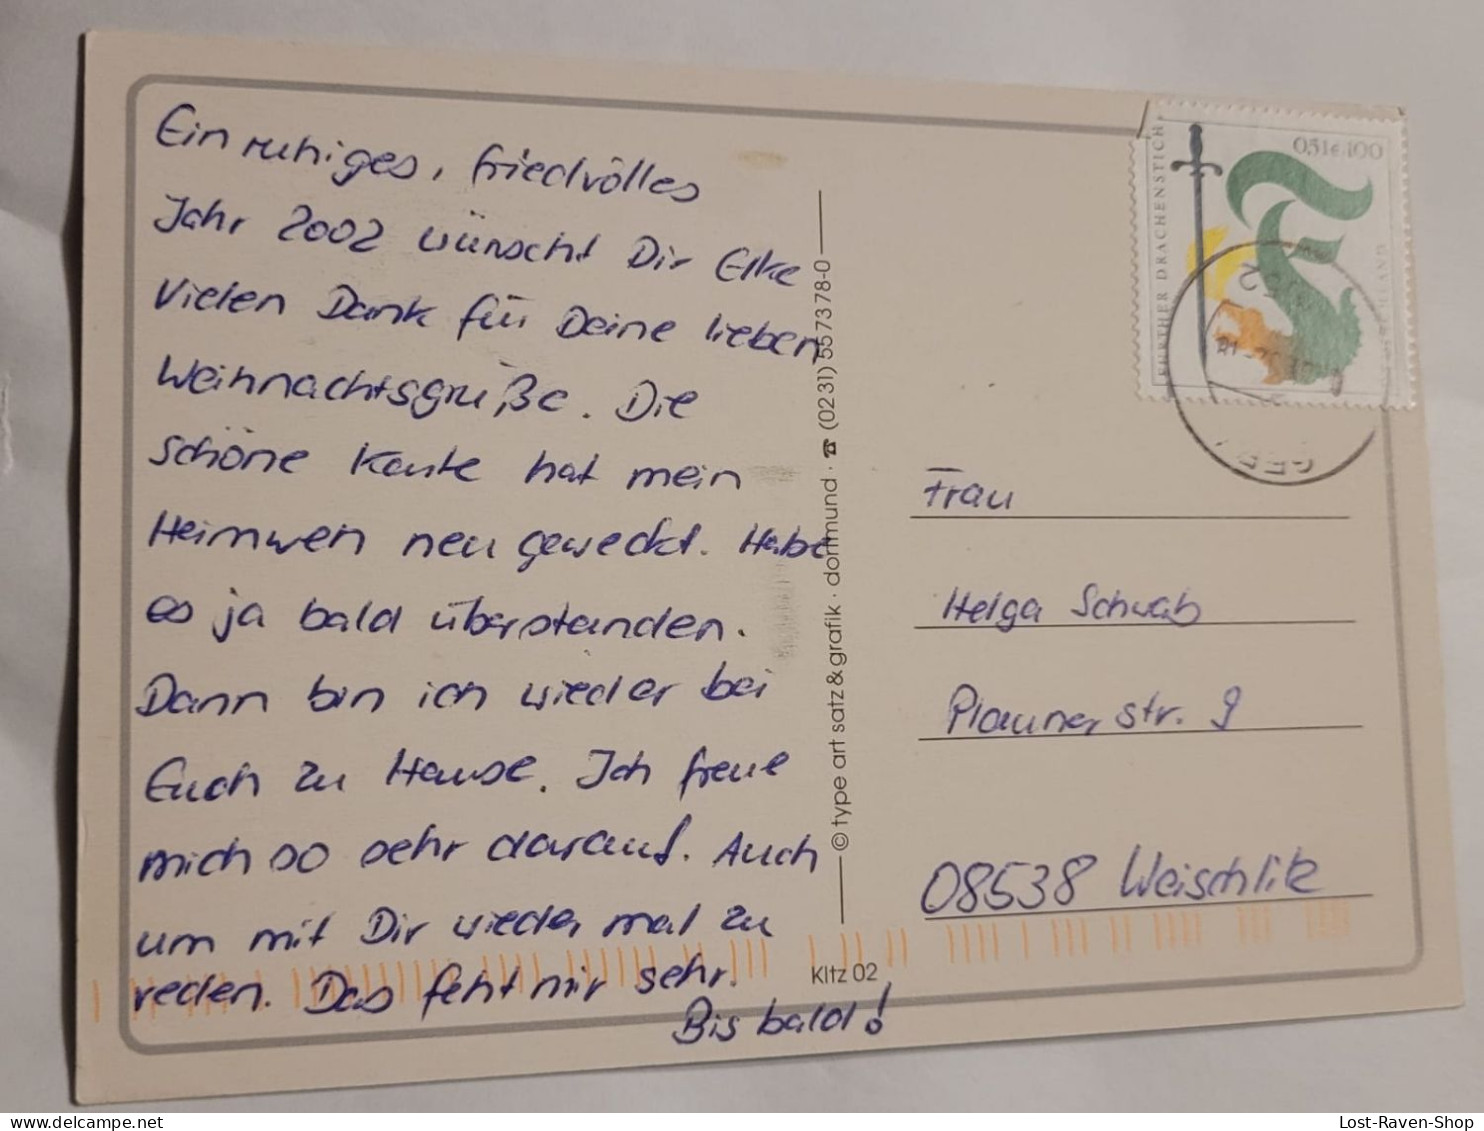 Ein ruhiges, friedvolles
Jahr 2002 wünscht Dir Elke
Vielen Dank für Deine lieben
Weihnachtsgrüße. Die
schöne Karte hat mein
Heimweh neu geweckt. Habe
es ja bald überstanden.
Dann bin ich wieder bei
Euch zu Hause. Ich freue
mich so sehr darauf. Auch
um mit Dir wieder mal zu
reden. Das fehlt mir sehr.
Bis bald!
© type art satz & grafik · dortmund · ☎ (0231) 557378-0
Kltz 02
0,51€ 100
FURTHER DRACHENSTICH
Frau
Helga Schwab
Plauner Str. 9
08538 Weischlitz
Lost-Raven-Shop